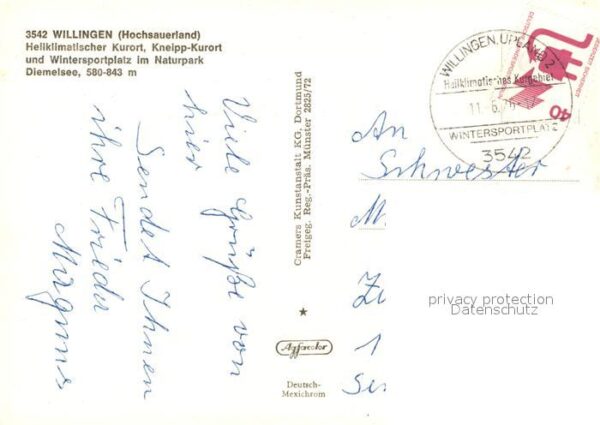 3542 WILLINGEN (Hochsauerland)
Heilklimatischer Kurort, Kneipp-Kurort
und Wintersportplatz im Naturpark
Diemelsee, 580-843 m
Viele Grüße von
hier
Sendet Ihnen
ihre Frieda
Magnus
Cramers Kunstanstalt KG, Dortmund
Freigeg. Reg.-Präs. Münster 2825/72
Agfacolor
Deutsch-
Mexichrom
WILLINGEN, UPLAND 2
Heilklimatisches Kurgebiet
11. 6. 76
WINTERSPORTPLATZ
3542
40
An
Schwester
M
1
privacy protection
Datenschutz